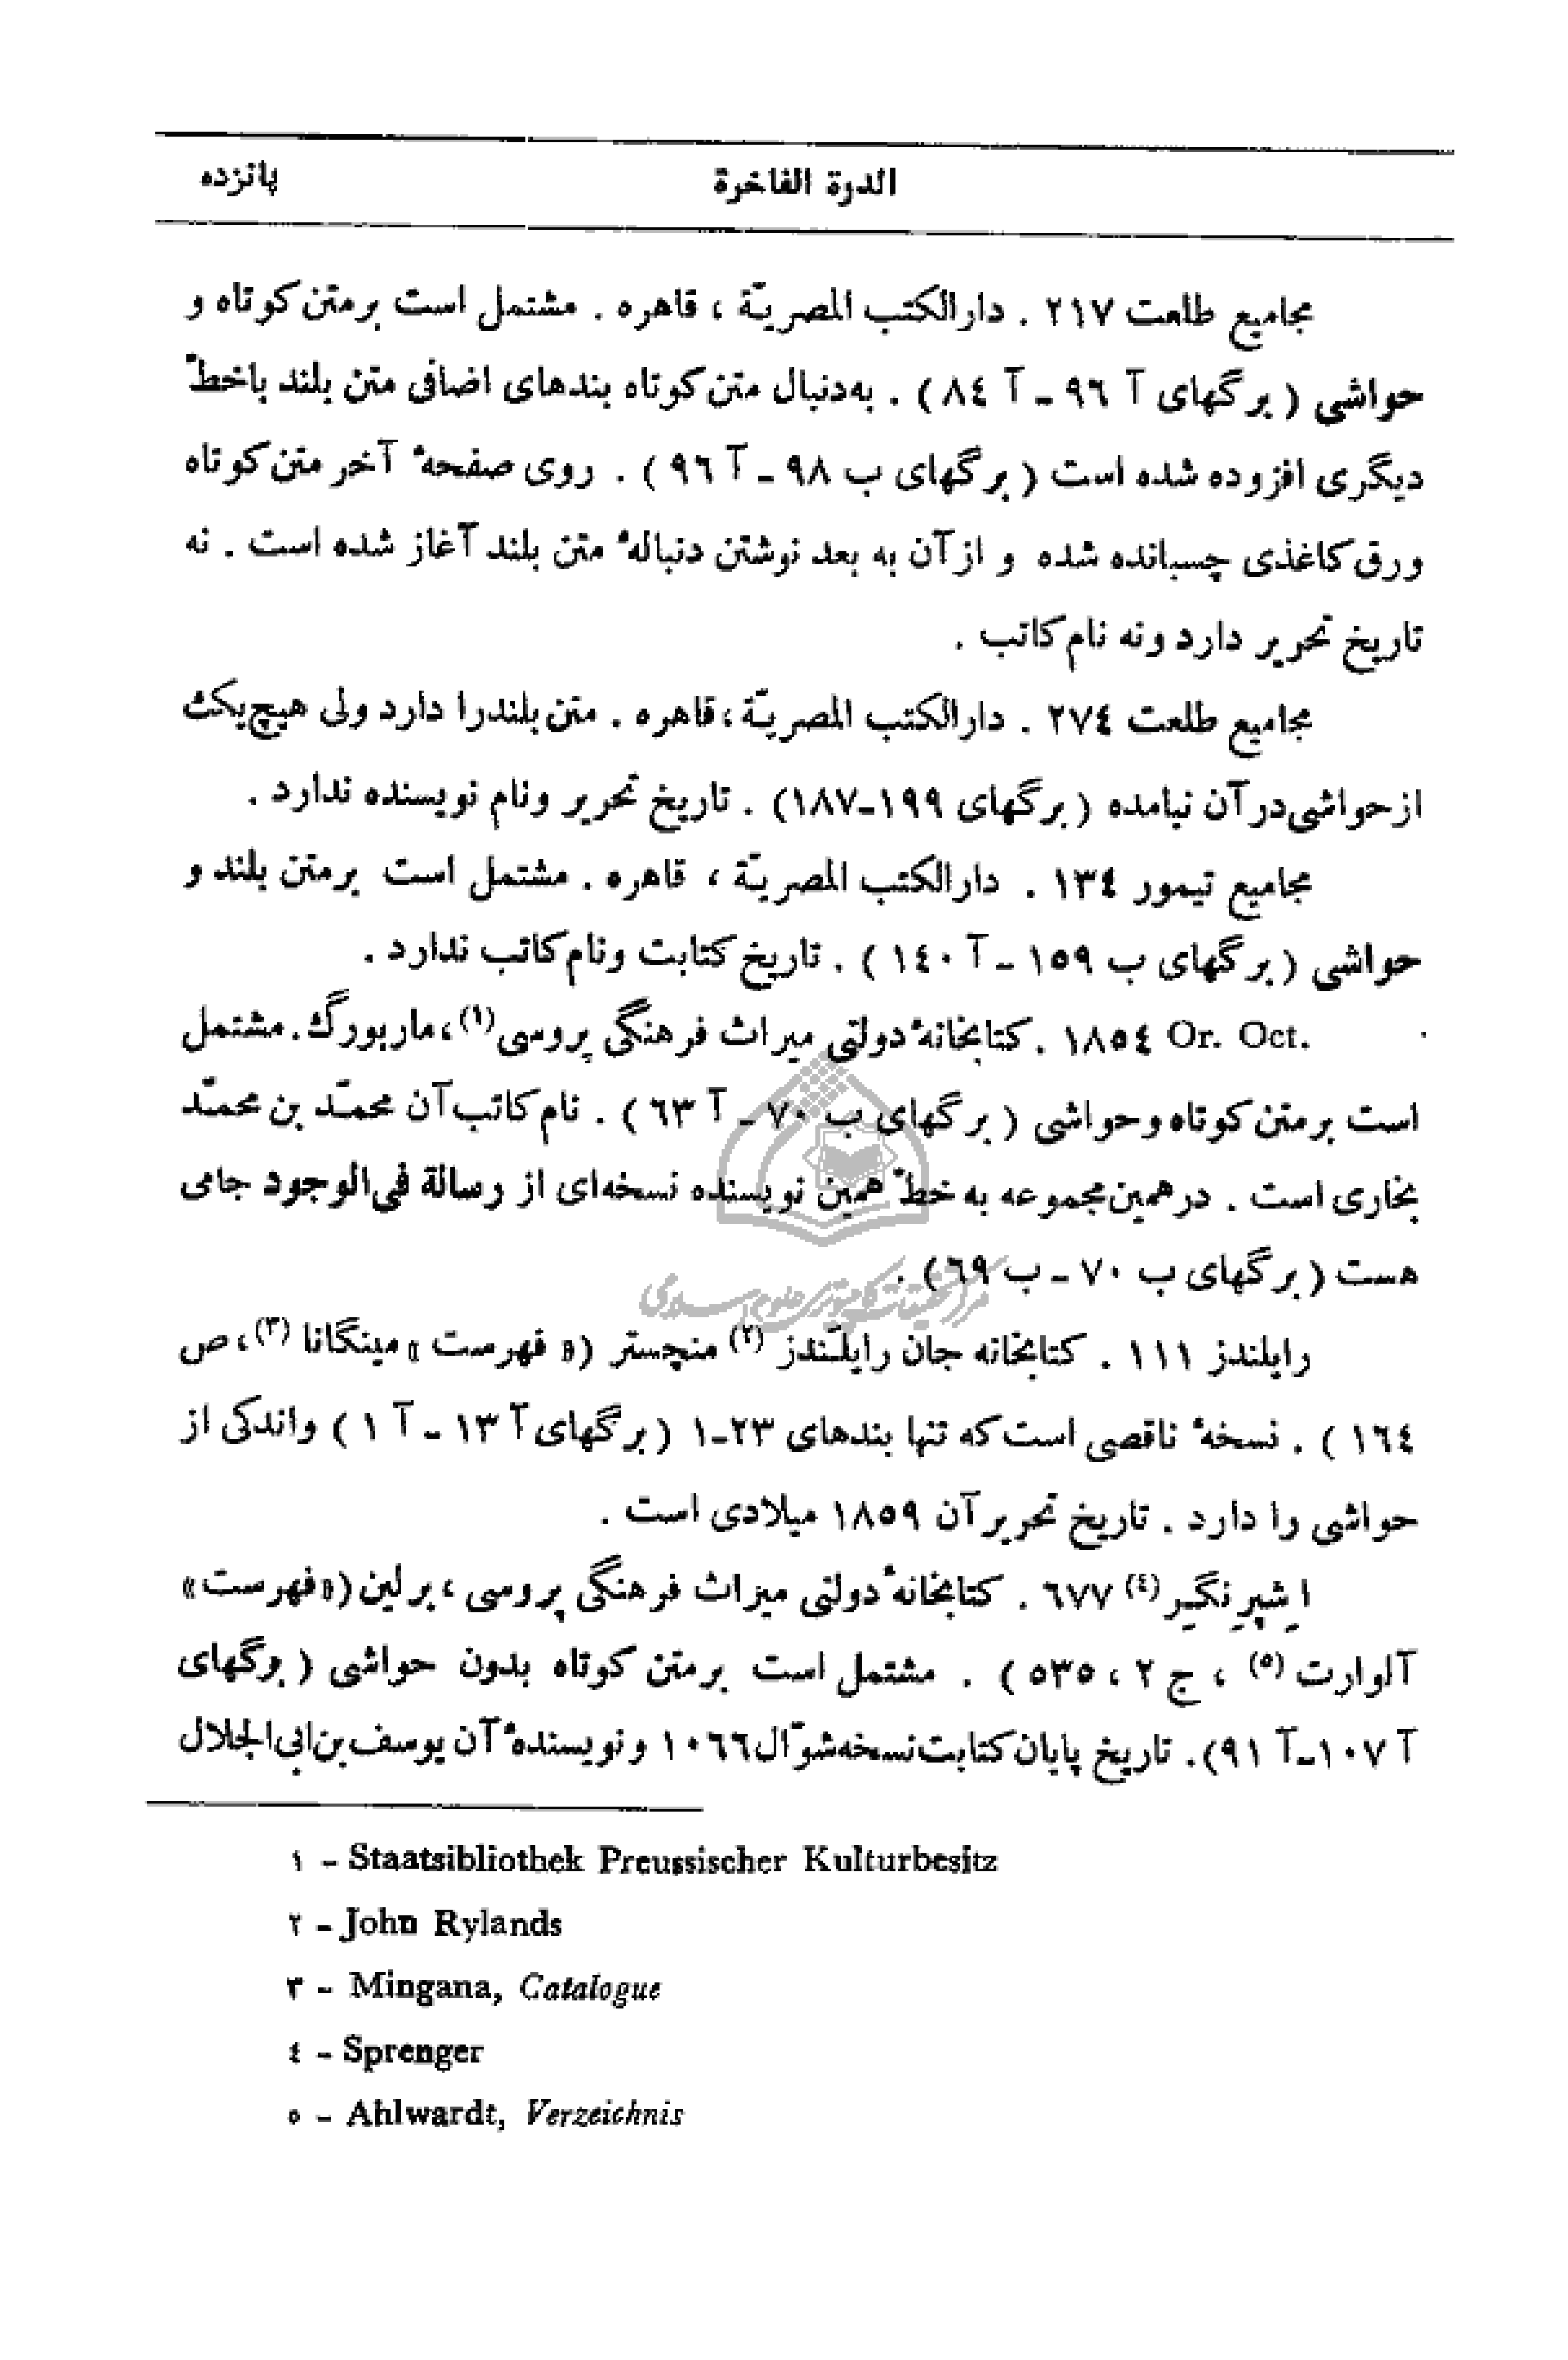 الدرة الفاخرة پانزده
مجاميع طلعت ٢١٧ . دارالكتب المصريّة ، قاهره . مشتمل است برمتن كوتاه و
حواشى ( برگهاى آ ٩٦ ـ آ ٨٤ ) . به‌دنبال متن كوتاه بندهاى اضافى متن بلند باخطّ
ديگرى افزوده شده است ( برگهاى ب ٩٨ ـ آ ٩٦ ) . روى صفحهٔ آخر متن كوتاه
ورق كاغذى چسبانده شده و ازآن به بعد نوشتن دنبالهٔ متن بلند آغاز شده است . نه
تاريخ تحرير دارد ونه نام كاتب .
مجاميع طلعت ٢٧٤ . دارالكتب المصريّة ، قاهره . متن بلندرا دارد ولى هيچ‌يك
ازحواشى درآن نيامده ( برگهاى ١٩٩-١٨٧) . تاريخ تحرير ونام نويسنده ندارد .
مجاميع تيمور ١٣٤ . دارالكتب المصريّة ، قاهره . مشتمل است برمتن بلند و
حواشى ( برگهاى ب ١٥٩ ـ آ ١٤٠ ) . تاريخ كتابت ونام كاتب ندارد .
Or. Oct. ١٨٥٤ . كتابخانهٔ دولتى ميراث فرهنگى پروسى(١)، ماربورگ . مشتمل
است برمتن كوتاه وحواشى ( برگهاى ب ٧٠ ـ آ ٦٣ ) . نام كاتب آن محمّد بن محمّد
بخارى است . درهمين مجموعه به خطّ همين نويسنده نسخه‌اى از رسالة فى الوجود جامى
هست ( برگهاى ب ٧٠ ـ ب ٦٩ ) .
مركز تحقيقات كامپيوترى علوم اسلامى
رايلندز ١١١ . كتابخانه جان رايلَندز (٢) منچستر (« فهرست » مينگانا (٣)، ص
١٦٤ ) . نسخهٔ ناقصى است كه تنها بندهاى ٢٣-١ ( برگهاى آ ١٣ ـ آ ١ ) واندكى از
حواشى را دارد . تاريخ تحرير آن ١٨٥٩ ميلادى است .
اِشپرِنگِر (٤) ٦٧٧ . كتابخانهٔ دولتى ميراث فرهنگى پروسى ، برلين («فهرست»
آلوارت (٥) ، ج ٢ ، ٥٣٥ ) . مشتمل است برمتن كوتاه بدون حواشى ( برگهاى
آ ١٠٧ـآ ٩١). تاريخ پايان كتابت نسخه شوّال ١٠٦٦ ونويسندهٔ آن يوسف بن ابى الجلال
١ - Staatsibliothek Preussischer Kulturbesitz
٢ - John Rylands
٣ - Mingana, Catalogue
٤ - Sprenger
٥ - Ahlwardt, Verzeichnis